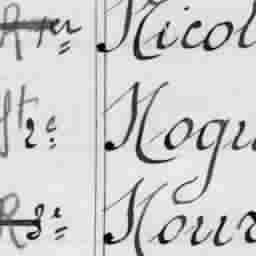 R 1er Nicol
St 2e Nogu
R 3e Nour